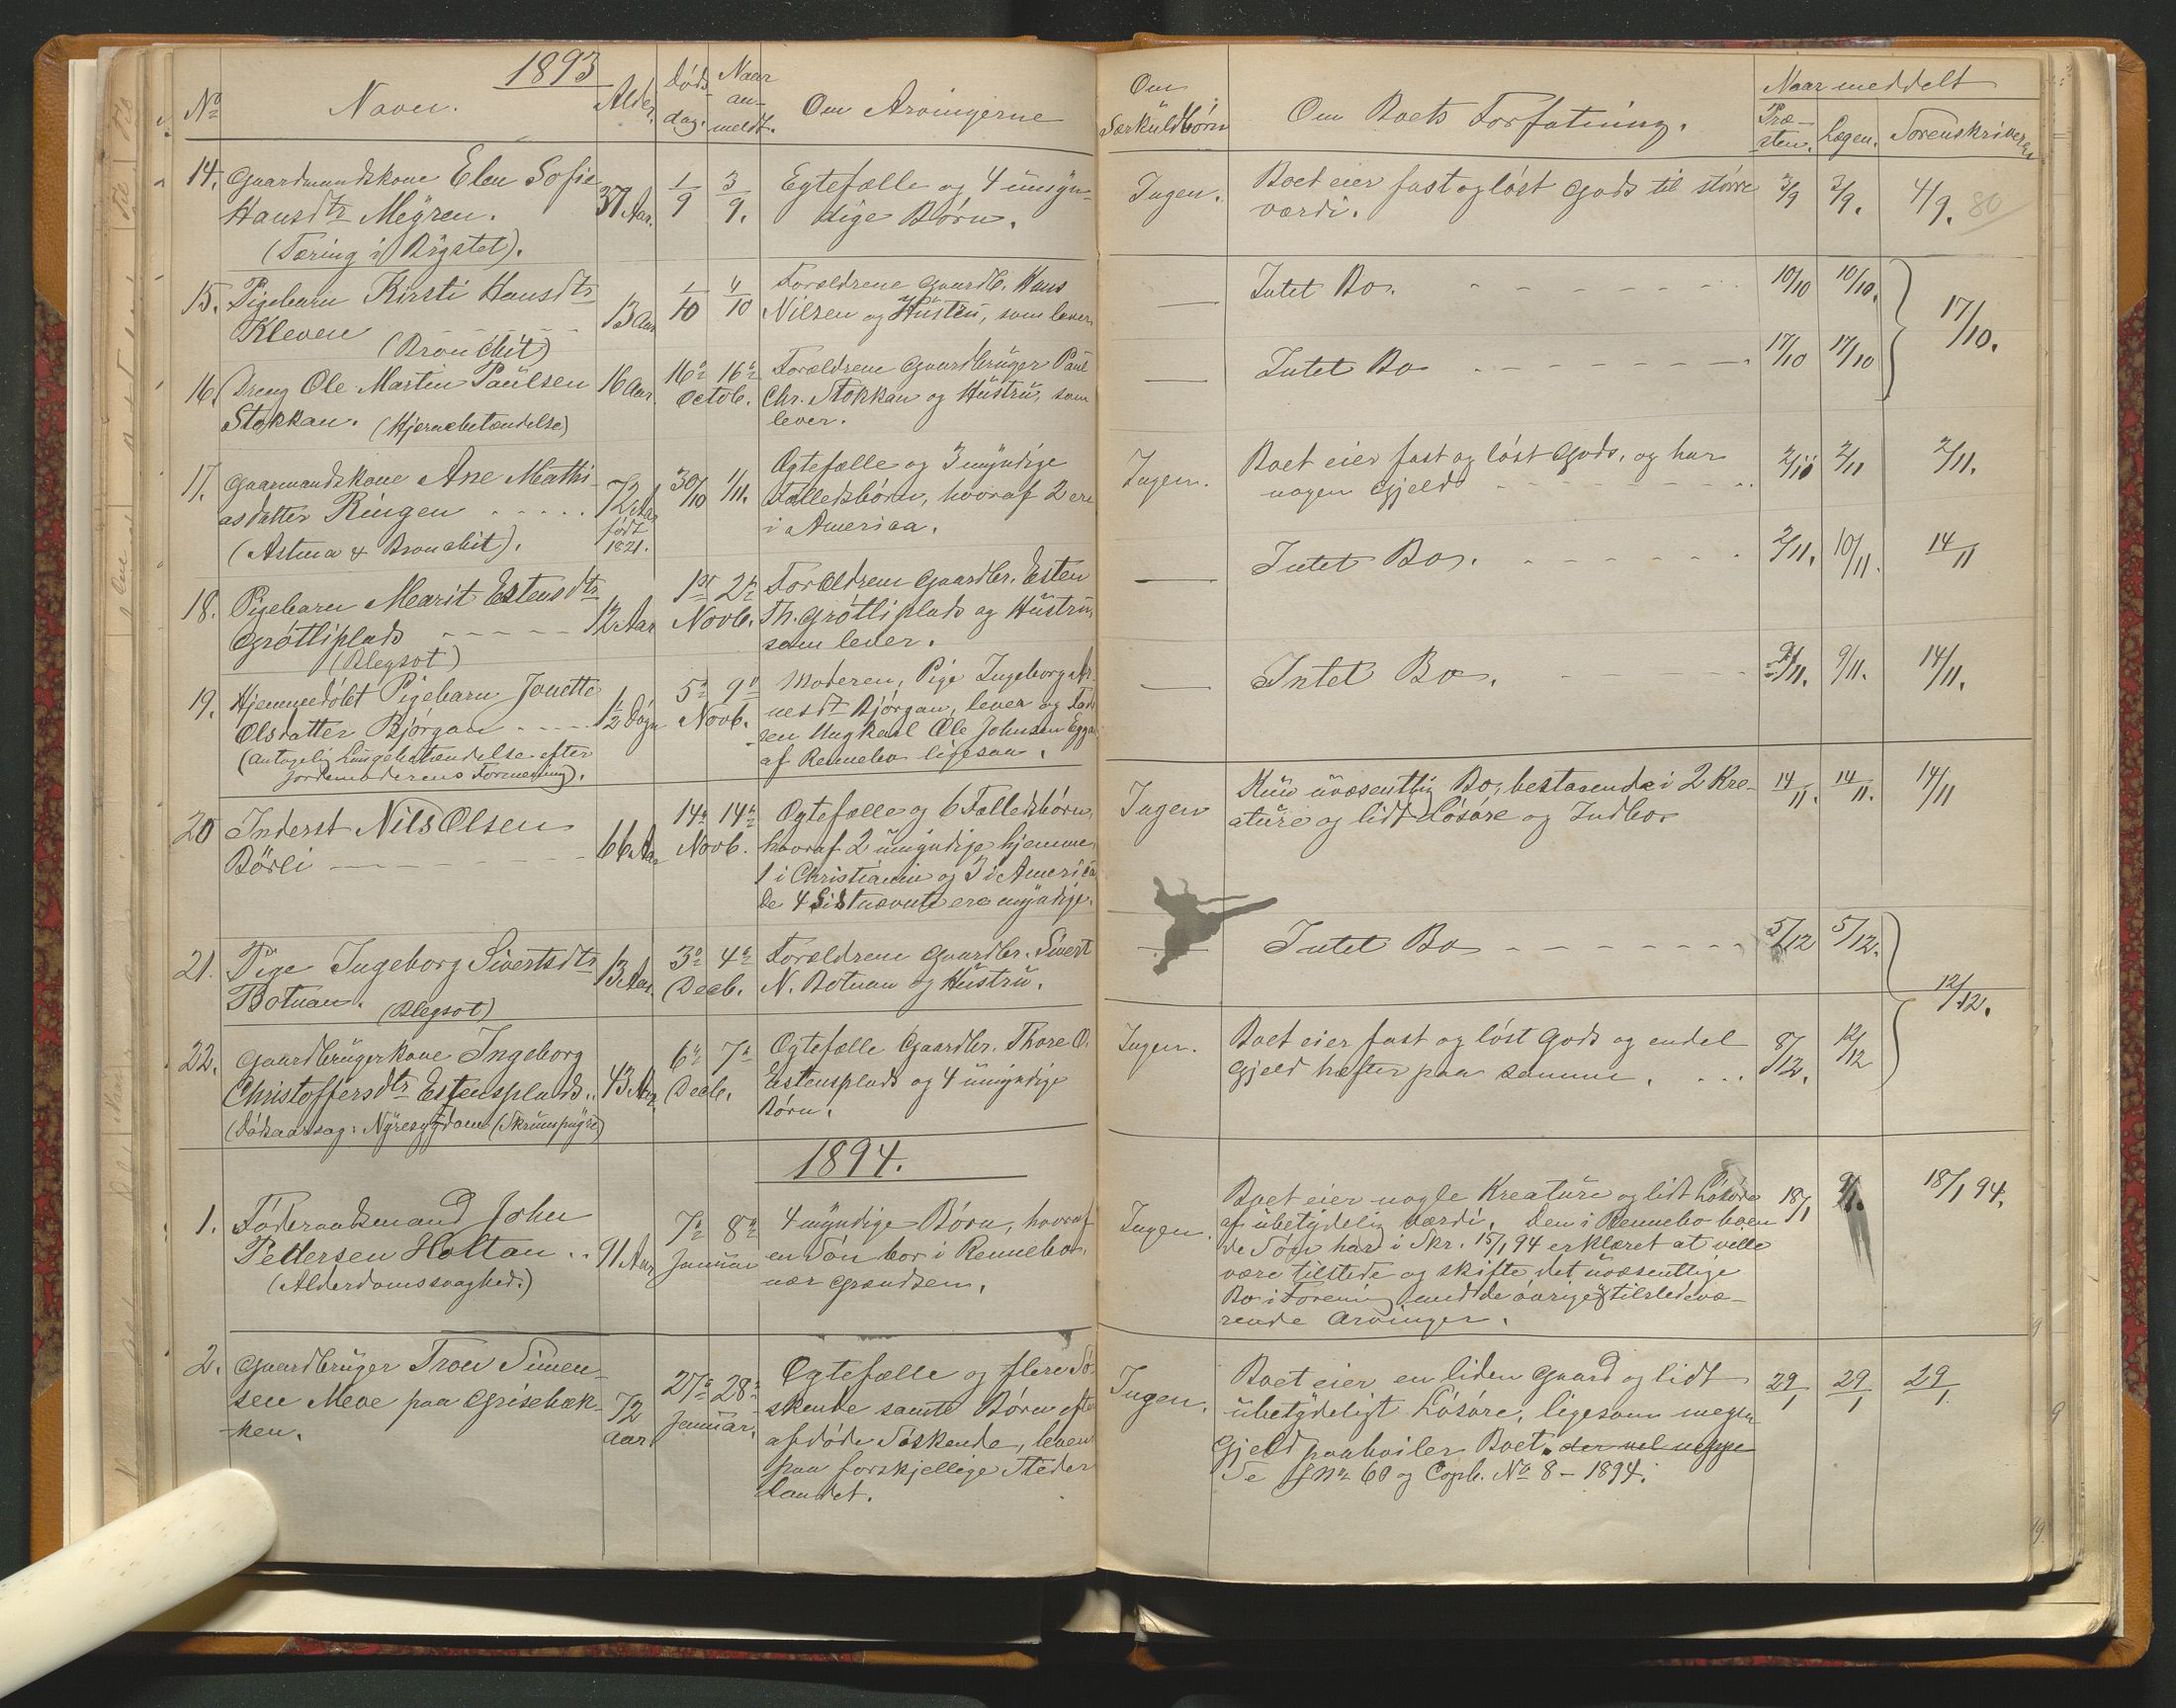 1893
No
Navn.
Alder.
Døds-
dag.
Naar
an-
meldt.
Om Arvingerne
14. Gaardmandskone Elen Sofie
Hansdtr Myren.
(Tæring i Brystet).
37 Aar.
1/9
3/9.
Egtefælle og 4 umyn-
dige Børn.
15. Pigebarn Kirsti Hansdtr
Kleven
(Bronchit)
13 Aar
1/10
4/10
Forældrene Gaardb. Hans
Nilsen og Hustru, som lever
16. Dreng Ole Martin Paulsen
Stokkan. (Hjernebetændelse)
16 Aar.
16de 16de
Octob.
Forældrene Gaardbruger Paul
Chr. Stokkan og Hustru, som
lever.
17. Gaarmandskone Ane Mathi-
asdatter Ringen
(Astma & Bronchit).
72 Aar
født
1821.
30/10
1/11.
Ægtefælle og 3 myndige
Fællesbørn, hvoraf 2 ere
i America.
18. Pigebarn Marit Estensdtr
Grøtliplads
(Blegsot)
12 Aar
1ste 2de
Novb.
Forældrene Gaardbr. Esten
Th. Grøtliplads og Hustru,
som lever.
19. Hjemmedøbt Pigebarn Jonette
Olsdatter Bjørgan
(Antagelig Lungebetændelse efter
Jordemoderens Formening).
1/2 Døgn
5te 9de
Novb.
Moderen, Pige Ingeborg Ar-
nesdtr Bjørgan, lever og Fad
ren Ungkarl Ole Johnsen Eggan
af Rennebo ligesaa.
20 Inderst Nils Olsen
Børli
66 Aar
14de 14de
Novb.
Ægtefælle og 6 Fællesbørn,
hvoraf 2 umyndige hjemme,
1 i Christiania og 3 i America
de 4 Sidstnævnte ere myndige.
21. Pige Ingeborg Sivertsdtr
Botnan. (Blegsot)
13 Aar.
3de 4de
Decb.
Forældrene Gaardbr. Sivert
N. Botnan og Hustru.
22. Gaardbrugerkone Ingeborg
Christoffersdtr Estensplads..
(Dødsaarsag: Nyresygdom (Skrumpnyre)
43 Aar.
6te 7de
Decb.
Ægtefælle Gaardbr. Thore O.
Estensplads og 4 umyndige
Børn.
1894.
1. Føderaadsmand John
Pettersen Holtan ..
(Alderdomssvaghed.)
91 Aar
7de 8de
Januar
4 myndige Børn, hvoraf
en Søn bor i Rennebo
nær Grændsen.
2. Gaardbruger Tron Simen-
sen Meve paa Grisebæk-
ken.
72
Aar
27de 28de
Januar.
Ægtefælle og flere Sø-
skende samt Børn efter
afdøde Søskende, lever
paa forskjellige Steder
Landet.
Om
Særkuldbørn
Om Boets Forfatning.
Naar meddelt
Præ-
sten.
Lægen.
Sorenskriveren
Ingen.
Boet eier fast og løst Gods til større
værdi.
3/9
3/9.
4/9.
80
Intet Bo.
10/10
10/10.
17/10.
Intet Bo
17/10
17/10
Ingen.
Boet eier fast og løst Gods, og har
nogen Gjeld
2/11
2/11
2/11.
Intet Bo.
2/11.
10/11.
14/11
Intet Bo.
9/11.
9/11.
14/11.
Ingen
Kun uvæsentlig Bo, bestaaende i 2 Kre-
ature og lidt Løsøre og Indbo
14/11.
14/11.
14/11
Intet Bo
5/12
5/12.
12/12.
Ingen.
Boet eier fast og løst Gods og endel
Gjeld hæfter paa samme.
8/12.
12/12
Ingen.
Boet eier nogle Kreature og lidt Løsøre
af ubetydelig værdi. Den i Rennebo boen
de Søn har i Skr. 15/1 94 erklæret at ville
være tilstede og skifte det uvæsentlige
Bo i Forening med de øvrige tilstedevæ-
rende Arvinger.
18/1
18/1 94.
Ingen.
Boet eier en liden Gaard og lidt
ubetydeligt Løsøre, ligesom megen
Gjeld paahviler Boet. der vel neppe
Se JNo 60 og Copb. No 8 - 1894.
29/1
29/1
29/1.